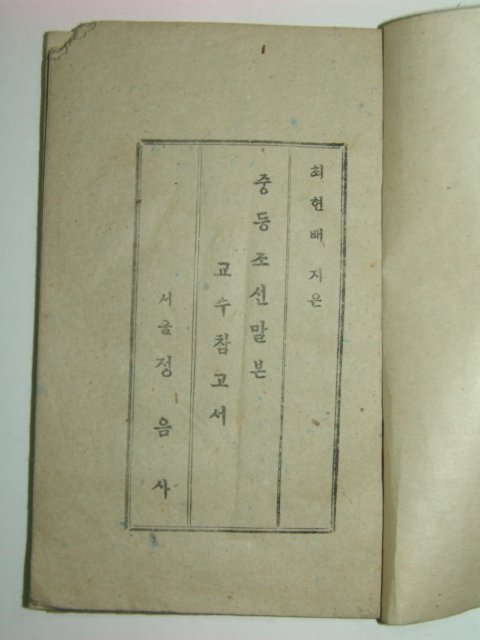 최현배 지은
중등조선말본
교수참고서
서울 정음사